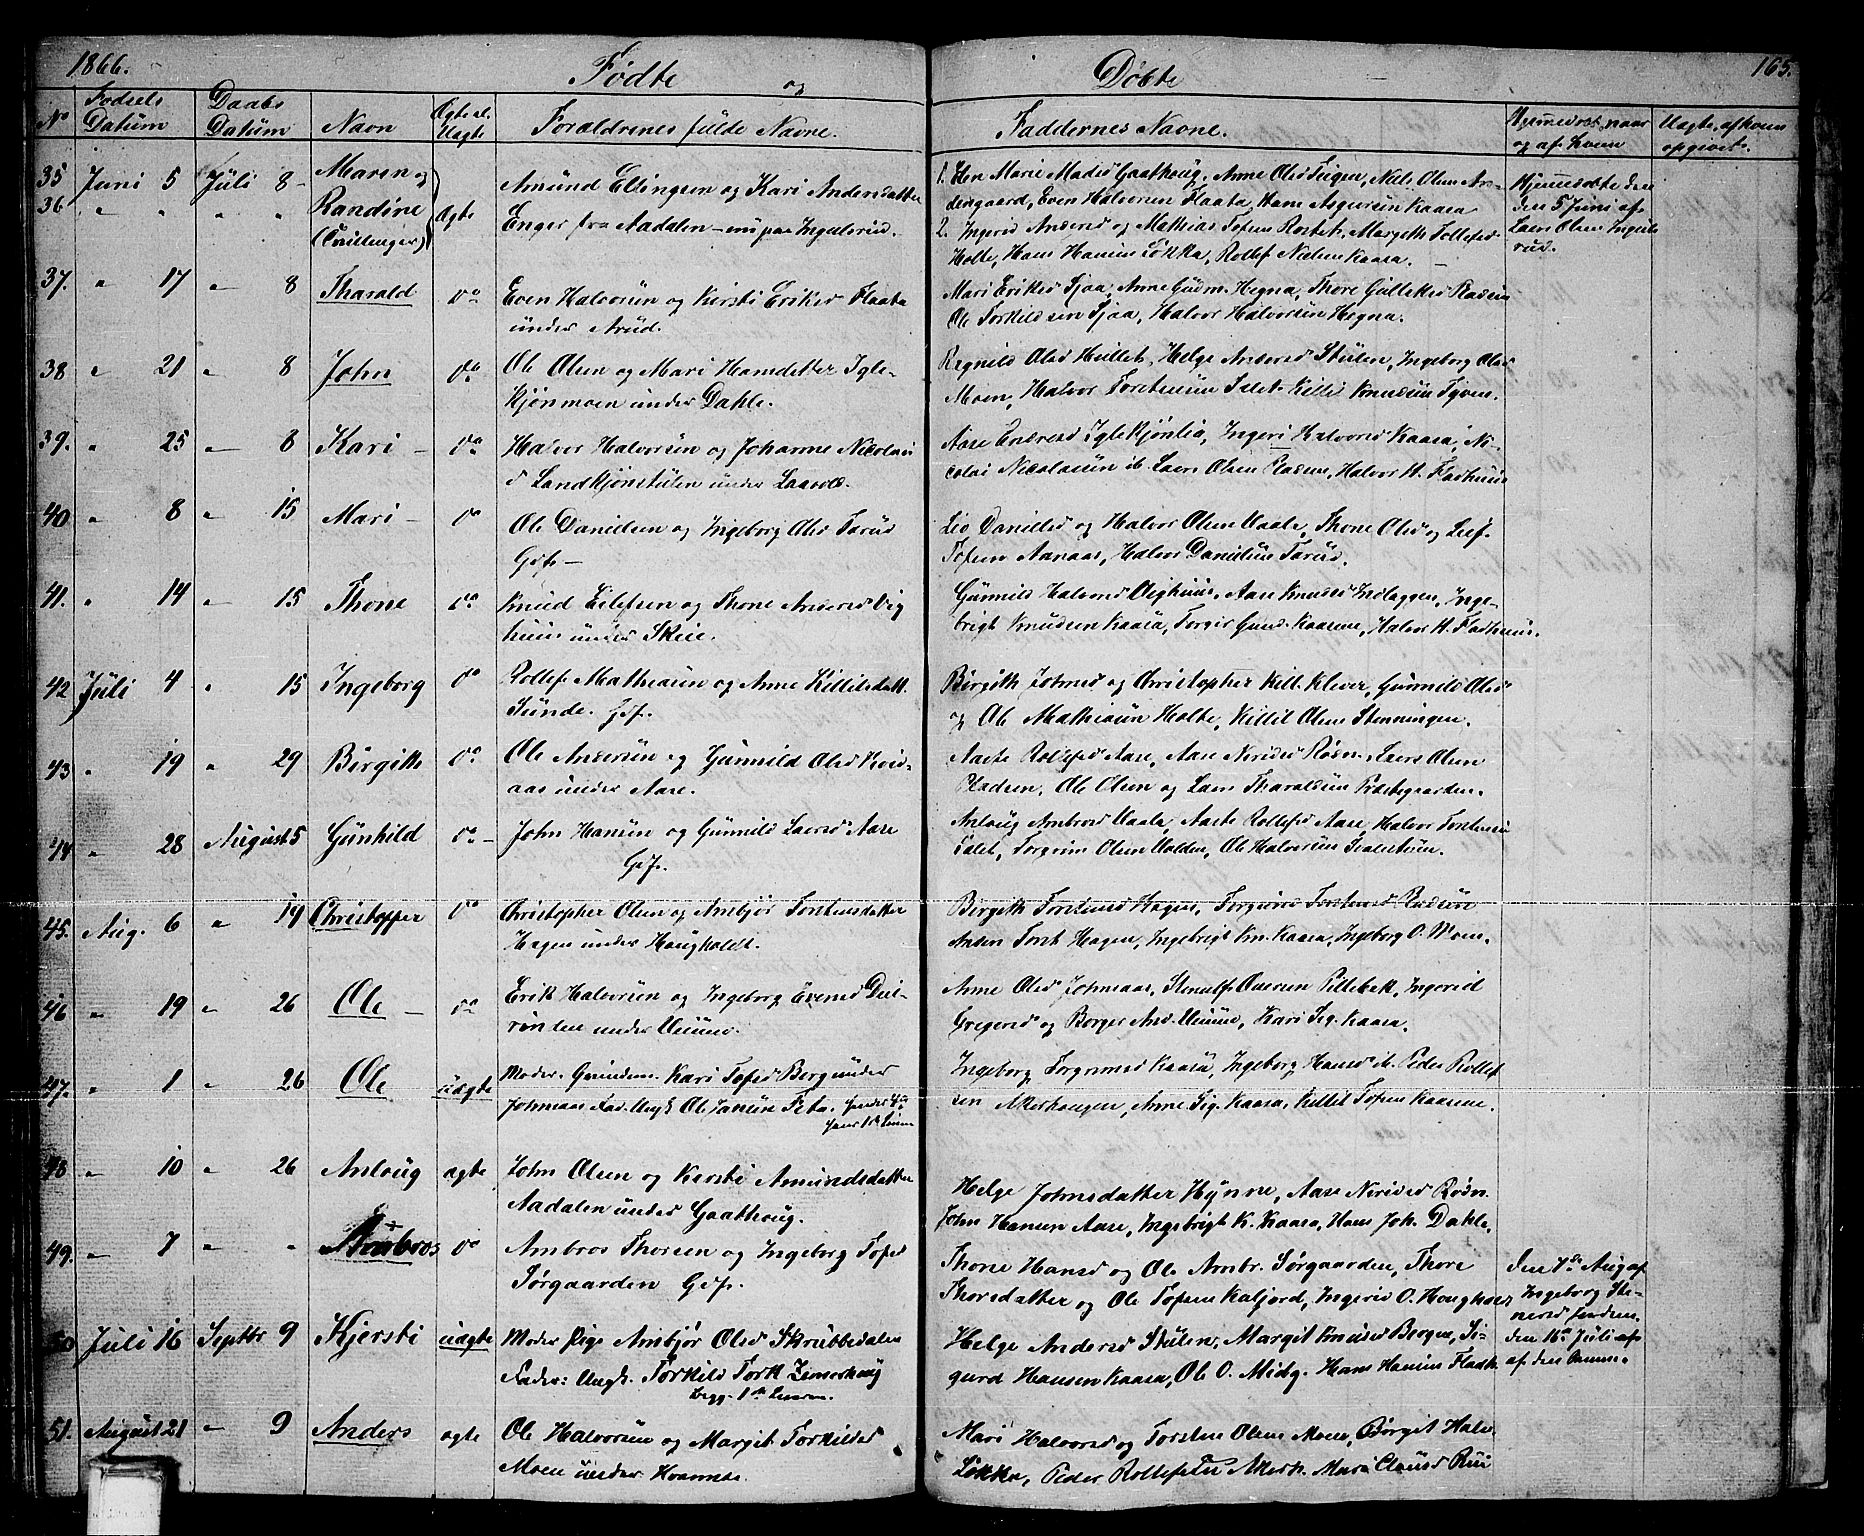 1866. Födte og Döbte 165.
No Fødsels Datum Daabs Datum Navn Ægte el. Uægte Forældrenes fulde Navne. Faddernes Navne. Hjemmedøbt, naar og af hvem Uægte, af hvem opgivet.
35 Juni 5 Juli 8 Maren og Amund Ellingsen og Kari Andersdatter
36 " " " " Randine Ægte Enger fra Aadalen – nu paa Ingulsrud.
(Tvillinger)
1. Marie Madsd Gaathoug, Anne Olsd Teigen, Niels Olsen
Even Halvorsen Flaata, Hans Asgersen Kaasa
2. Ingerid Andersd og Mathias Tofsen Rostet, Margith Tollefsd
Holte, Hans Hansen Løkka, Rollef Nielsen Kaasa.
Hjemmedøbte
den 5 Juni af
Lars Olsen Inguls
rud.
37. " 17 " 8 Tharald do Even Halvorsen og Kirsti Eriksd Flaata
under Arud.
Mari Eriksd Tjaa, Anne Gudm. Hegna, Thore Gulleksd Pladsen
Ole Torkildsen Tjaa, Halvor Halvorsen Hegna.
38 " 21 " 8 John do Ole Olsen og Mari Hansdatter Igle-
kjønmoen under Dahle.
Regnild Olsd Hullet, Helge Andersd Stulen, Ingeborg Olsd
Moen, Halvor Torstensen Islet, Killil Knudsen
39. " 25 " 8 Kari do Halvor Halvorsen og Johanne Nicolai
d Landkjønstulen under
Aase Endresd Iglekjønlia, Ingeri Halvorsd Kaasa, Ni-
colai Nicolaisen ib. Lars Olsen Pladsen, Halvor H. Fladhuus
40 " 8 " 15 Mari do Ole Danielsen og Ingeborg Olsd Tarud
Gdf.
Liv Danielsd og Halvor Olsen Vaala, Thone Olsd og Leif
Tofsen Aanaas, Halvor Danielsen Tarud.
41. " 14 " 15 Thone do Knud Eilefsen og Thone Andersd Vig
huus under Skeie.
Gunnild Halvorsd Vighuus, Aase Knudsd Indlaggen, Inge-
brigt Knudsen Kaasa, Torgir Gund. Kaasene, Halvor H. Fladhuus.
42 Juli 4 " 15 Ingeborg do Rollef Mathiasen og Anne Killilsdatt.
Sunde. Gdf.
Birgith Johnsd og Christopher Kill. Klever, Gunnild Olsd
og Ole Mathiasen Holte, Killil Olsen Stenningen.
43 " 19 " 29 Birgith do Ole Andersen og Gunnild Olsd Kvid-
aas under Aase.
Aaste Rollefsd Aase, Aase Nerisd Røsn. Lars Olsen
Pladsen, Ole Olsen og Lars Tharaldsen Præstegaarden.
44 " 28 August 5 Gunhild do John Hansen og Gunnild Larsd Aase
Gdf.
Anlaug Ambrosd Vaala, Aaste Rollefsd Aase, Halvor Torstensen
Islet, Torgrim Olsen Volden, Ole Halvorsen
45. Aug. 6 " 19 Christopher do Christopher Olsen og Anbjør Torstensdatter
Hagen under Haugholdt.
Birgith Torstensd Hagen, Torgone Torstensd Pladsen
Anders Torst. Hagen, Ingebrigt Kn. Kaasa, Ingeborg O. Moen.
46 " 19 " 26 Ole do Erik Halvorsen og Ingeborg Evensd
under
Anne Olsd Johnsaas, Stenulf Pillebek, Ingerid
Gregersd og Borger And. Kari Sig. Kaasa.
47. " 1 " 26 Ole uægte Moder. Kari Tofsd Berg under
Johnsaas Fad. Ungk. Ole Jansen Feta.
Ingeborg Torgrimsd Kaasa, Ingeborg Hansd ib. Peder Rollef
sen Akerhaugen, Anne Sig. Kaasa, Killil Tofsen Kaasene.
48 " 10 " 26 Anlaug ægte John Olsen og Kersti Amundsdatter
Aadalen under Gaathoug.
Helge Johnsdatter Hynne, Aase Nerisd Røsn.
John Hansen Aase, Ingebrigt K. Kaasa, Hans Joh. Dahle.
49. " 7 " " Ambros do Ambros Thorsen og Ingeborg Tofsd
Sørgaarden Gdf.
Thone Hansd og Ole Ambr. Sørgaarden, Thore
Thorsdatter og Ole Tofsen Kalford, Ingerid O. Houghold
den 7de Aug af
Ingeborg Ste-
nersd
50 Juli 16 Septbr 9 Kjersti uægte Moder Pige Anbjør Olsd Skrubbedalen
Fader: Ungk. Torkild Tork.
Begg. 1ste
Helge Andersd Stulen, Margit Knudsd Bergan, Si-
gurd Hansen Kaasa, Ole O. Midg. Hans Hansen Fladh.
den 16de Juli af
51. August 21 " 9 Anders ægte Ole Halvorsen og Margit Torkildsd
Moen under
Mari Halvorsd og Torsten Olsen Moen, Børgit Halv.
Løkka, Peder Rollefsen Akerh. Mari Clausd Rui